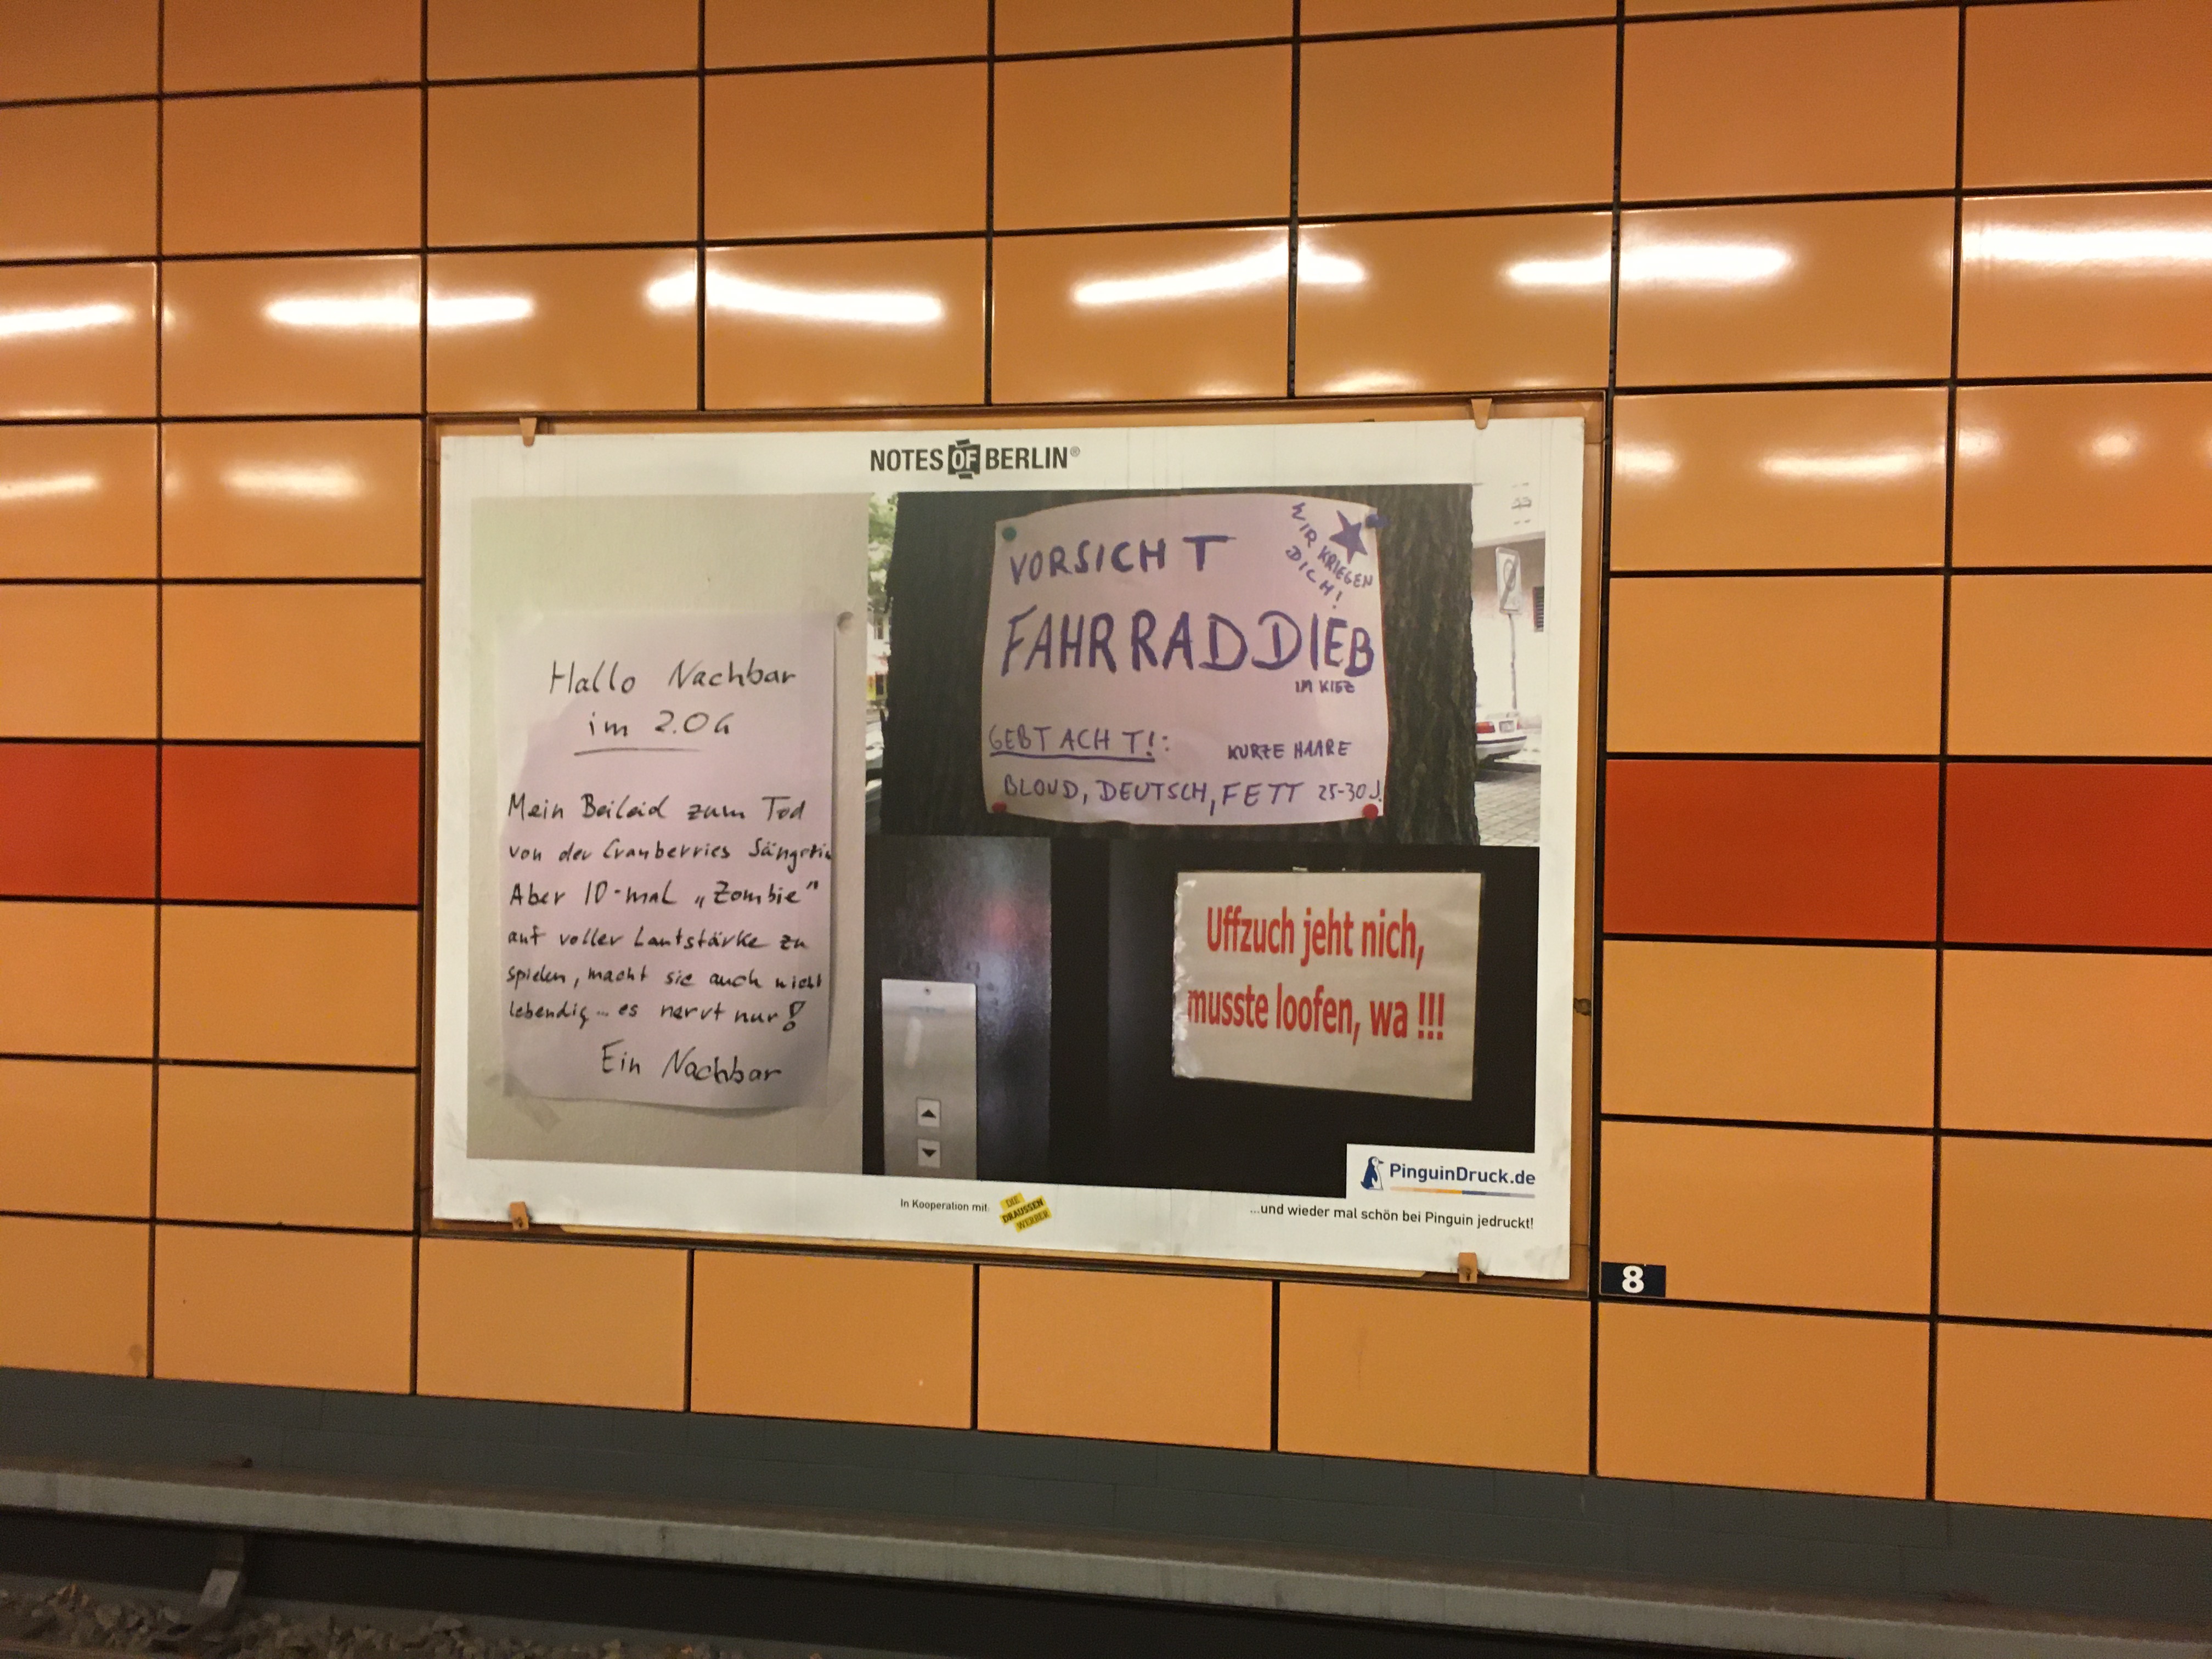 NOTES OF BERLIN®
Hallo Nachbar
im 2.OG
Mein Beileid zum Tod
von der Cranberries Sängerin
Aber 10-mal „Zombie"
auf voller Lautstärke zu
spielen, macht sie auch nicht
lebendig... es nervt nur!
Ein Nachbar
VORSICHT
WIR KRIEGEN
DICH!
FAHRRADDIEB
IM KIEZ
GEBT ACHT!:
KURZE HAARE
BLOND, DEUTSCH, FETT 25-30 J.
Uffzuch jeht nich,
musste loofen, wa !!!
PinguinDruck.de
In Kooperation mit
DIE
DRAUSSEN
WERBER
...und wieder mal schön bei Pinguin jedruckt!
8